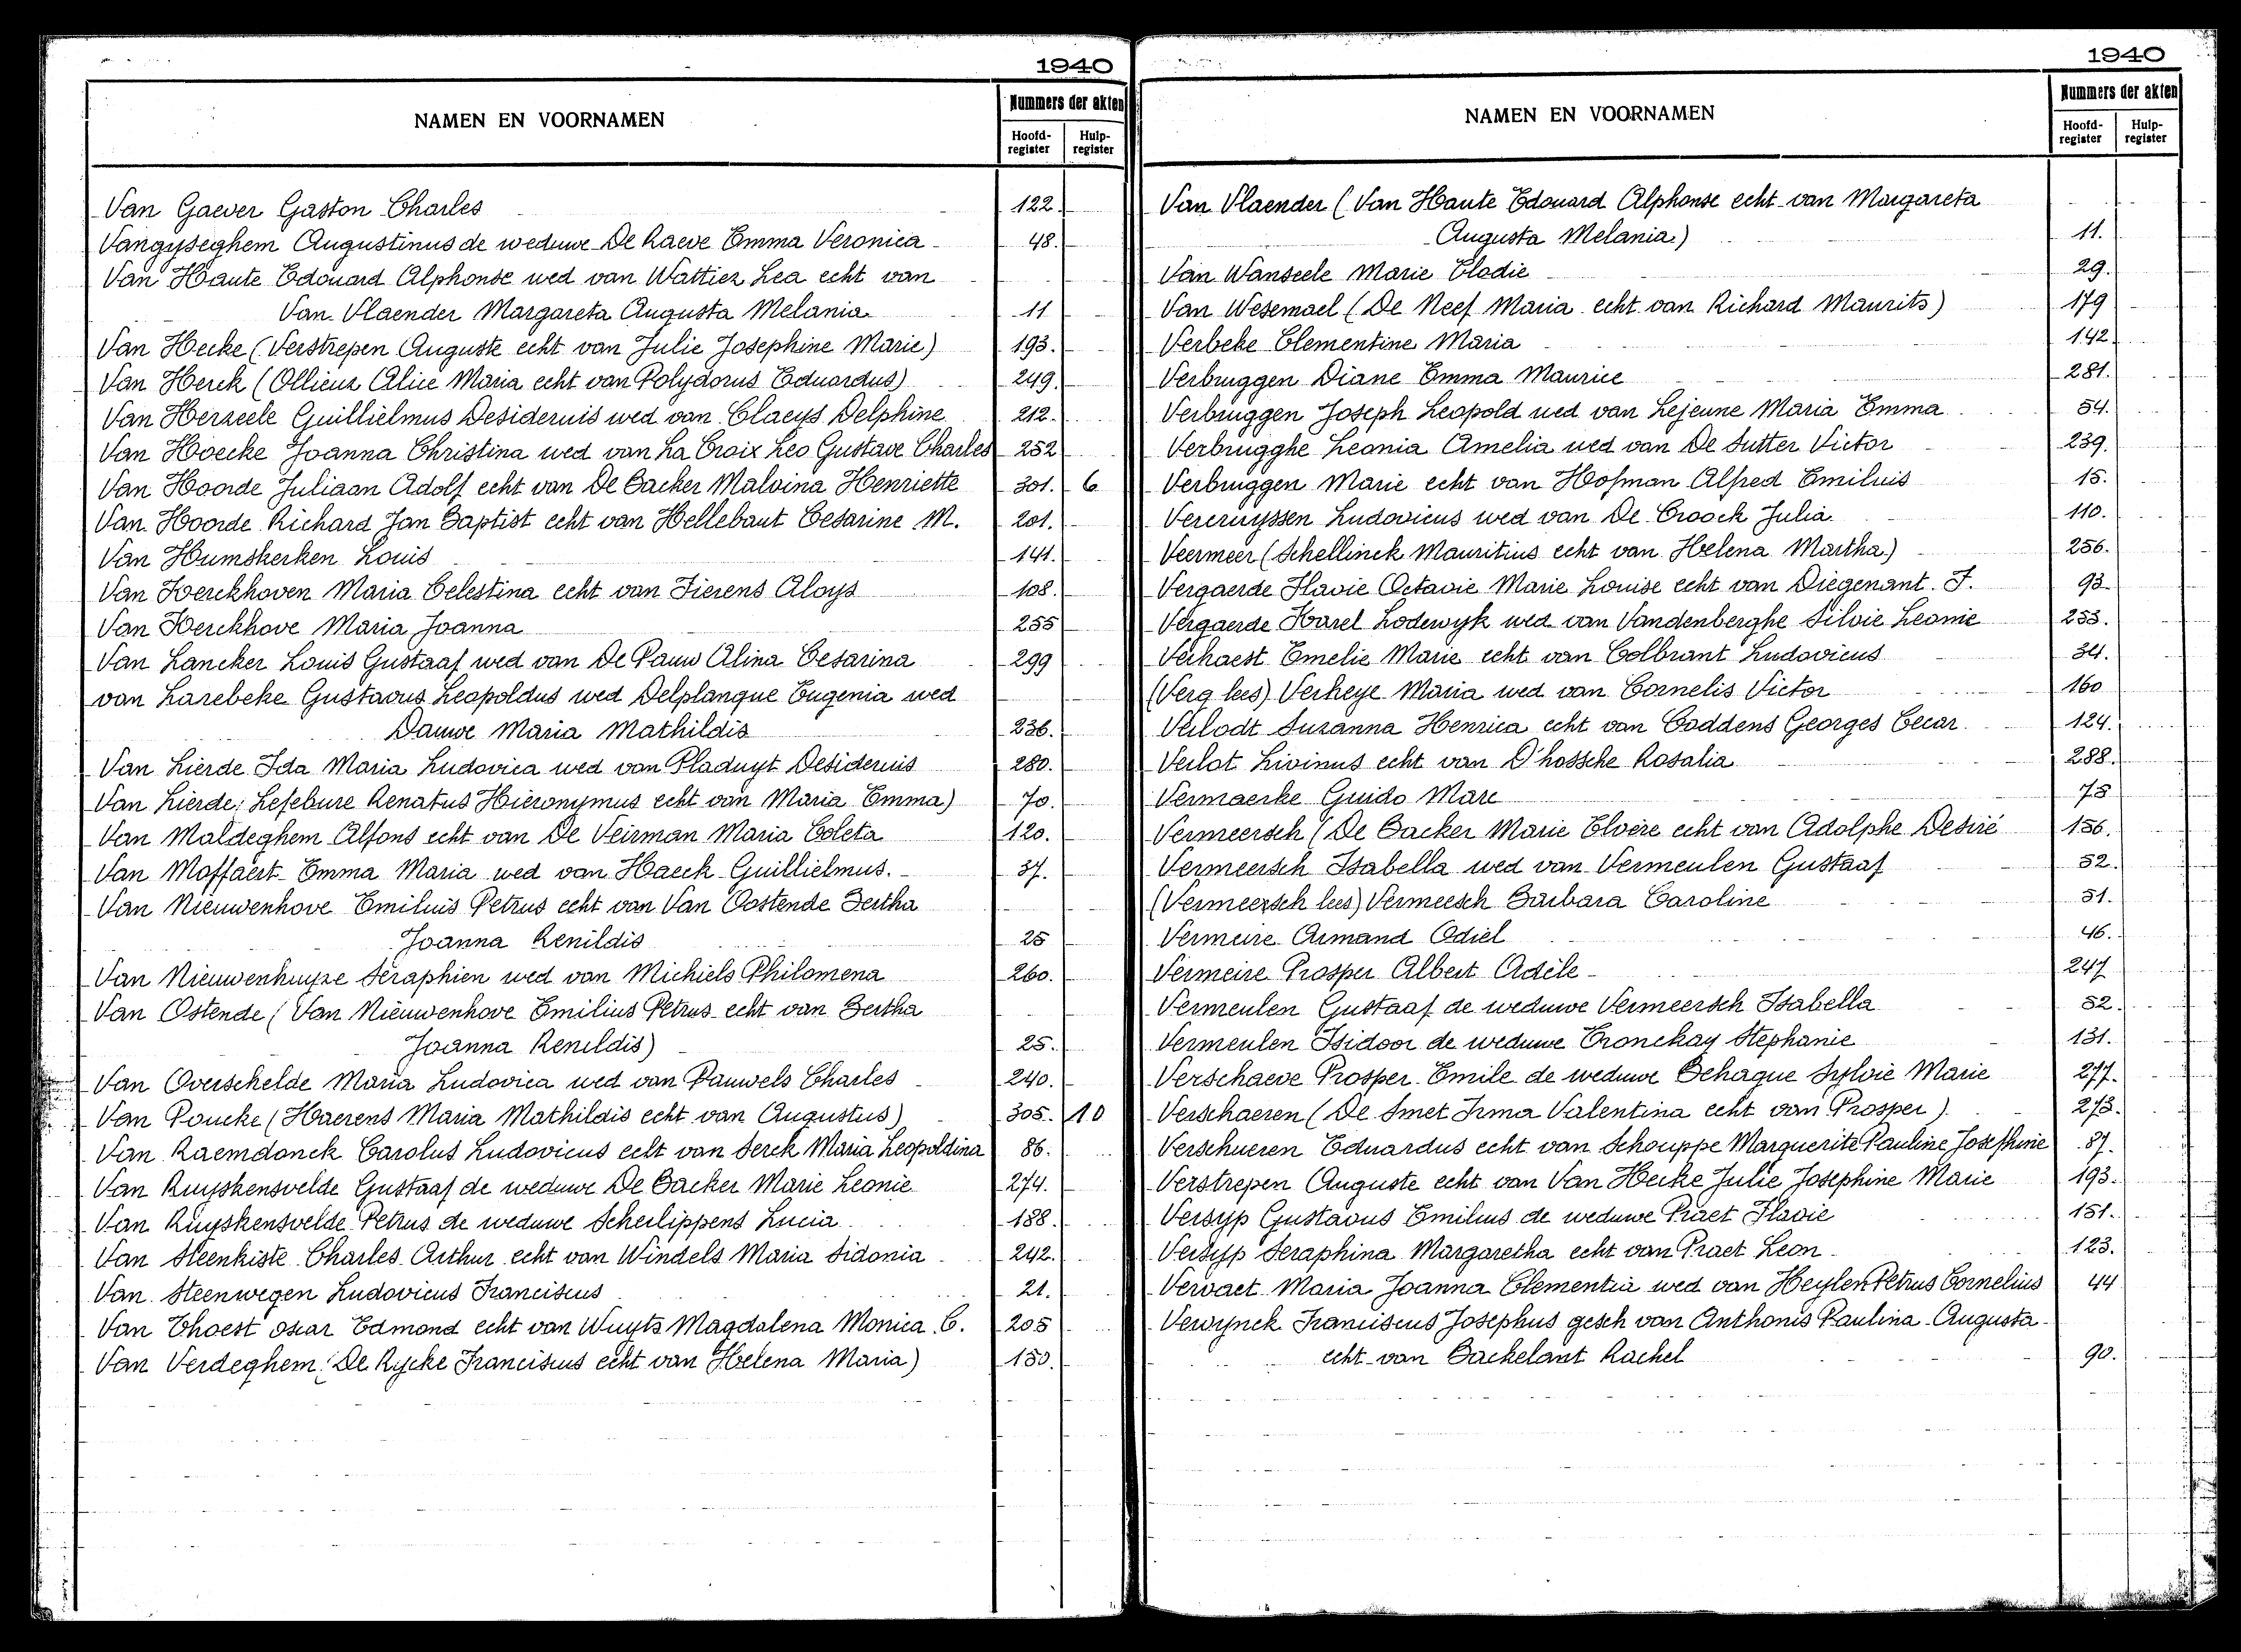 1940
NAMEN EN VOORNAMEN
Nummers der akten
Hoofd-register
Hulp-register
Van Gaever Gaston Charles 122.
Vangyseghem Augustinus de weduwe De Raeve Emma Veronica 48.
Van Haute Edouard Alphonse wed van Wattiez Lea echt van
Van Vlaender Margareta Augusta Melania 11
Van Hecke (Verstrepen Auguste echt van Julie Josephine Marie) 193.
Van Herck (Ollieux Alice Maria echt van Polydorus Eduardus) 249.
Van Herzeele Guillielmus Desiderius wed van Claeys Delphine 212.
Van Hoecke Joanna Christina wed van La Croix Leo Gustave Charles 252
Van Hoorde Juliaan Adolf echt van De Backer Malvina Henriette 301. 6
Van Hoorde Richard Jan Baptist echt van Hellebaut Cesarine M. 201.
Van Humskerken Louis 141.
Van Kerckhoven Maria Celestina echt van Fierens Aloys 108.
Van Kerckhove Maria Joanna 255
Van Lancker Louis Gustaaf wed van De Pauw Alina Cesarina 299
van Larebeke Gustavus Leopoldus wed Delplanque Eugenia wed
Dauwe Maria Mathildis 236.
Van Lierde Ida Maria Ludovica wed van Pladuyt Desiderius 280.
Van Lierde (Lefebure Renatus Hieronymus echt van Maria Emma) 70.
Van Maldeghem Alfons echt van De Veirman Maria Coleta 120.
Van Moffaert Emma Maria wed van Haeck Guillielmus. 37.
Van Nieuwenhove Emilius Petrus echt van Van Oostende Bertha
Joanna Renildis 25
Van Nieuwenhuyze Seraphien wed van Michiels Philomena 260.
Van Ostende (Van Nieuwenhove Emilius Petrus echt van Bertha
Joanna Renildis) 25.
Van Overschelde Maria Ludovica wed van Pauwels Charles 240.
Van Poucke (Haerens Maria Mathildis echt van Augustus) 305. 10
Van Raemdonck Carolus Ludovicus echt van Serck Maria Leopoldina 86.
Van Ruyskensvelde Gustaaf de weduwe De Backer Marie Leonie 274.
Van Ruyskensvelde Petrus de weduwe Scheilippens Lucia 188.
Van Steenkiste Charles Arthur echt van Windels Maria Sidonia 242.
Van Steenwegen Ludovicus Franciscus 21.
Van Thoest Oscar Edmond echt van Wuyts Magdalena Monica C. 205
Van Verdeghem (De Rycke Franciscus echt van Helena Maria) 150.
1940
NAMEN EN VOORNAMEN
Nummers der akten
Hoofd-register
Hulp-register
Van Vlaender (Van Haute Edouard Alphonse echt van Margareta
Augusta Melania) 11.
Van Wanseele Marie Elodie 29.
Van Wesemael (De Neef Maria echt van Richard Maurits) 179
Verbeke Clementine Maria 142
Verbruggen Diane Emma Maurice 281.
Verbruggen Joseph Leopold wed van Lejeune Maria Emma 54.
Verbrugghe Leonia Amelia wed van De Sutter Victor 239.
Verbruggen Marie echt van Hofman Alfred Emilius 15.
Vercruyssen Ludovicus wed van De Croock Julia 110.
Veermeer (Schellinck Mauritius echt van Helena Martha) 256.
Vergaerde Flavie Octavie Marie Louise echt van Diegenant. F. 93
Vergaerde Karel Lodewyk wed van Vandenberghe Silvie Leonie 253.
Verhaest Emelie Marie echt van Colbrant Ludovicus 34.
(Verg lees) Verheye Maria wed van Cornelis Victor 160
Verlodt Suzanna Henrica echt van Coddens Georges Cecar 124.
Verlot Livinus echt van D'hossche Rosalia 288.
Vermaerke Guido Marc 78
Vermeersch (De Backer Marie Elvère echt van Adolphe Desiré 156.
Vermeersch Isabella wed van Vermeulen Gustaaf 52.
(Vermeersch lees) Vermeesch Barbara Caroline 51.
Vermeire Armand Odiel 46.
Vermeire Prosper Albert Adèle 247
Vermeulen Gustaaf de weduwe Vermeersch Isabella 52.
Vermeulen Isidoor de weduwe Cronckay Stephanie 131.
Verschaeve Prosper Emile de weduwe Behague Sylvie Marie 277.
Verschaeren (De Smet Irma Valentina echt van Prosper) 273.
Verschueren Eduardus echt van Schouppe Marguerite Pauline Josephine 87.
Verstrepen Auguste echt van Van Hecke Julie Josephine Marie 193.
Versyp Gustavus Emilius de weduwe Praet Flavie 151.
Versyp Seraphina Margaretha echt van Praet Leon 123.
Vervaet Maria Joanna Clementia wed van Heylen Petrus Cornelius 44
Verwynck Franciscus Josephus gesch van Anthonis Paulina Augusta
echt van Backelant Rachel 90.